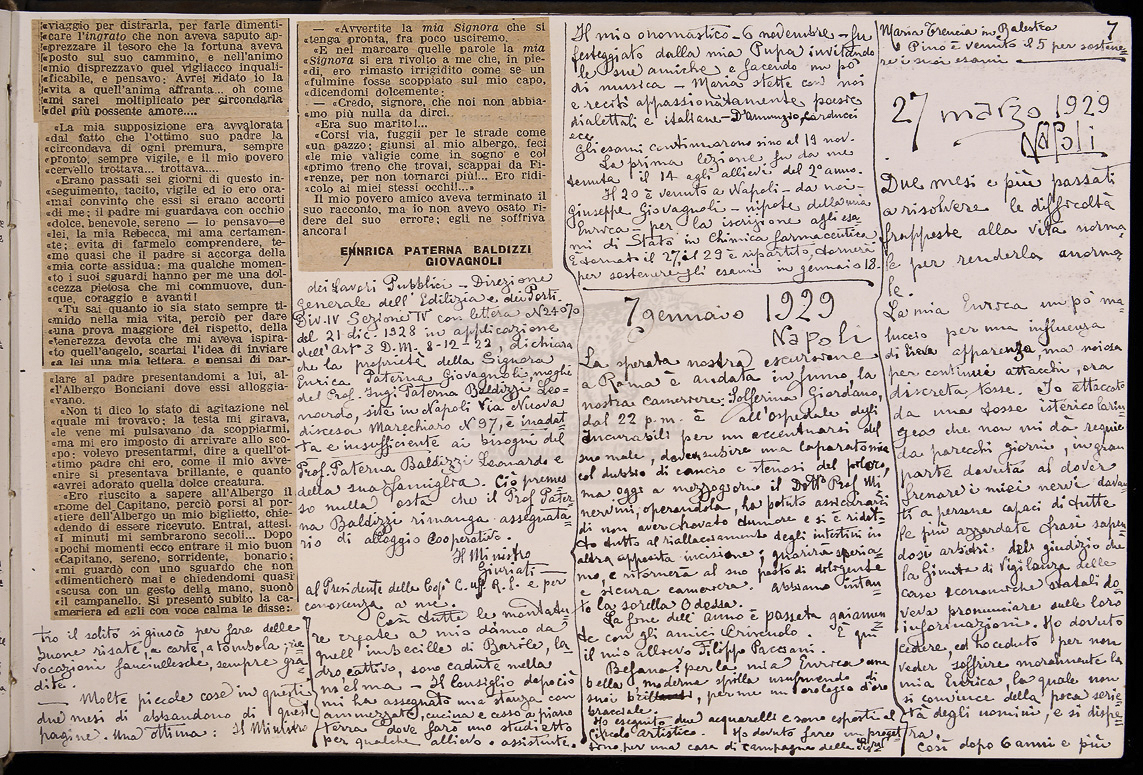 «viaggio per distrarla, per farle dimenti-
«care l'ingrato che non aveva saputo ap-
«prezzare il tesoro che la fortuna aveva
«posto sul suo cammino, e nell'animo
«mio disprezzavo quel vigliacco inquali-
«ficabile, e pensavo: Avrei ridato io la
«vita a quell'anima affranta... oh come
«mi sarei moltiplicato per circondarla
«del più possente amore....
«La mia supposizione era avvalorata
«dal fatto, che l'ottimo suo padre la
«circondava di ogni premura, sempre
«pronto, sempre vigile, e il mio povero
«cervello trottava... trottava....
«Erano passati sei giorni di questo in-
«seguimento, tacito, vigile ed io ero ora-
«mai convinto che essi si erano accorti
«di me; il padre mi guardava con occhio
«dolce, benevole, sereno — lo pensavo—e
«lei, la mia Rebecca, mi ama certamen-
«te; evita di farmelo comprendere, te-
«me quasi che il padre si accorga della
«mia corte assidua; ma qualche momen-
«to i suoi sguardi hanno per me una dol-
«cezza pietosa che mi commuove, dun-
«que, coraggio e avanti!
«Tu sai quanto io sia stato sempre ti-
«mido nella mia vita, perciò per dare
«una prova maggiore del rispetto, della
«tenerezza devota che mi aveva ispira-
«to quell'angelo, scartai l'idea di inviare
«a lei una mia lettera e pensai di par-
«lare al padre presentandomi a lui, al-
«l'Albergo Bonciani dove essi alloggia-
«vano.
«Non ti dico lo stato di agitazione nel
«quale mi trovavo; la testa mi girava,
«le vene mi pulsavano da scoppiarmi,
«ma mi ero imposto di arrivare allo sco-
«po; volevo presentarmi, dire a quell'ot-
«timo padre chi ero, come il mio avve-
«nire si presentava brillante, e quanto
«avrei adorato quella dolce creatura.
«Ero riuscito a sapere all'Albergo il
«nome del Capitano, perciò porsi al por-
«tiere dell'Albergo un mio biglietto, chie-
«dendo di essere ricevuto. Entrai, attesi.
«I minuti mi sembrarono secoli... Dopo
«pochi momenti ecco entrare il mio buon
«Capitano, sereno, sorridente, bonario;
«mi guardò con uno sguardo che non
«dimenticherò mai e chiedendomi quasi
«scusa con un gesto della mano, suonò
«il campanello. Si presentò subito la ca-
«meriera ed egli con voce calma le disse:
tro il solito si giuocò per fare delle
buone risate, a carte, a tombola; rie
vocazioni fanciullesche, sempre gra
dite.
— Molte piccole cose in questi
due mesi di abbandono di queste
pagine. Una ottima: Il Ministro
— «Avvertite la mia Signora che si
«tenga pronta, fra poco usciremo.
«E nel marcare quelle parole la mia
«Signora si era rivolto a me che, in pie-
«di, ero rimasto irrigidito come se un
«fulmine fosse scoppiato sul mio capo,
«dicendomi dolcemente:
— «Credo, signore, che noi non abbia-
«mo più nulla da dirci.
«Era suo marito!...
«Corsi via, fuggii per le strade come
«un pazzo; giunsi al mio albergo, feci
«le mie valigie come in sogno e col
«primo treno che trovai, scappai da Fi-
«renze, per non tornarci più!... Ero ridi-
«colo ai miei stessi occhi!...»
Il mio povero amico aveva terminato il
suo racconto, ma io non avevo osato ri-
dere del suo errore; egli ne soffriva
ancora!
ENNRICA PATERNA BALDIZZI
GIOVAGNOLI
dei Lavori Pubblici - Direzione
generale dell'Edilizia e dei Porti.
Div. IV Sezione IV con lettera N 24070
del 21 dic. 1928 in applicazione
dell'Art 3 D.M. 8-12-22 dichiara
che la proprietà della Signora
Enrica Paterna Giovagnoli, moglie
del Prof. Ing. Paterna Baldizzi Leo-
nardo, sita in Napoli Via Nuova
discesa Marechiaro N 97, è inadat
ta e insufficiente ai bisogni del
Prof. Paterna Baldizzi Leonardo e
della sua famiglia. Ciò premes
so nulla osta che il Prof. Pater
na Baldizzi rimanga assegnata=
rio di alloggio Cooperativo.
Il Ministro
Giuriati —
al Presidente della e per
conoscenza a me.
Così tutte le montatu
re create a mio danno da
quell'imbecille di Barile, la
dro cattivo, sono cadute nella
melma — Il Consiglio dopo ciò
mi ha assegnato una stanza con
ammezzato, cucina e cesso a piano
terra dove farò uno studietto
per qualche allievo - assistente.
Il mio onomastico - 6 novembre - fu
festeggiato dalla mia Pupa invitando
le sue amiche e facendo un pò
di musica — Maria stette con noi
e recitò appassionatamente poesie
dialettali e italiane - D'Annunzio, Carducci
ecc.
Gli esami continuarono sino al 19 nov.
La prima lezione fu da me
tenuta il 14 agli allievi del 2° anno.
Il 20 è venuto a Napoli - da noi -
Giuseppe Giovagnoli - nipote della mia
Enrica - per la iscrizione agli esa
mi di Stato in Chimica farmaceutica
È tornato il 27, il 29 è ripartito, tornerà
per sostenere gli esami in gennaio 18.
7 gennaio 1929
Napoli
La sperata nostra escursione
a Roma è andata in fumo, la
nostra cameriera: Solferina Giordano,
dal 22 p.m. è all'ospedale degli
Incurabili per un accentuarsi del
suo male, dover subire una laparatomia
col dubbio di cancro e stenosi del piloro,
ma oggi a mezzogiorno il Dott. Prof. Mi
nervini, operandola, ha potuto assicurarsi
di non aver trovato tumore e si è ridot=
to tutto al riallacciamento degli intestini in
altra apposita incisione; guarirà speria=
mo, e ritornerà al suo posto di diligente
e sicura cameriera. Abbiamo intan
to la sorella Odessa.
La fine dell'anno è passata gaiamen
te con gli amici Criscuolo. È qui
il mio allievo Filippo
Befana: per la mia Enrica una
bella moderna spilla usufruendo di
suoi brillanti, per me un orologio d'oro
bracciale.
Ho eseguito due acquarelle e sono esposti al
Circolo Artistico. Ho dovuto fare un proget
tino per una casa di campagna della
Maria Trencia in Baletta 7
Pino è venuto il 5 per sostene
re i suoi esami
27 marzo 1929
Napoli
Due mesi e più passati
a risolvere le difficoltà
frapposte alla vita norma=
le per renderla anorma=
le.
La mia Enrica un pò ma
luccio per una influenza
di lieva apparenza, ma noiosa
per continui attacchi, ora
discreta tosse. Io attaccato
da una tosse isterico laring
gea che non mi dà requie
da parecchi giorni, in gran
parte dovuta al dover
frenare i miei nervi davan
ti a persone capaci di tutte
le più azzardate frasi sapen
dosi arbitri del giudizio che
la Giunta di Vigilanza delle
case economiche statali do
veva pronunciare sulle loro
informazioni. Ho dovuto
cedere, ed ho ceduto per non
veder soffrire moralmente la
mia Enrica, la quale non
si convince della poca serie
tà degli uomini, e si dispe=
ra.
Così dopo 6 anni e più